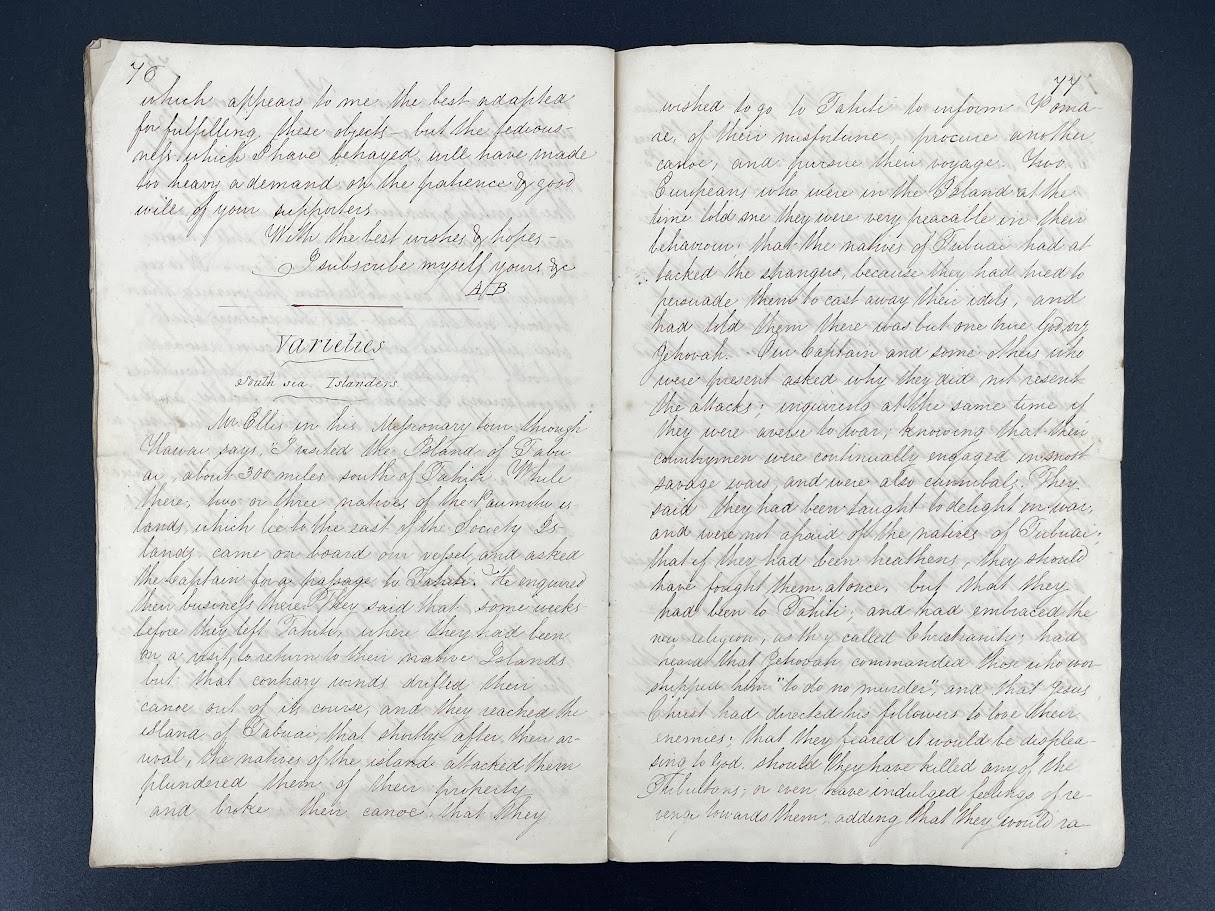 76
which appears to me the best adapted
for fulfilling these objects – but the tedious
ness which I have betrayed will have made
too heavy a demand on the patience & good
will of your supporters
With the best wishes & hopes –
I subscribe myself yours &c
AB
Varieties
South sea Islanders
Mr Ellis in his Missionary tour through
Hawai says, "I visited the Island of Tabu
ai, about 300 miles south of Tahiti, While
there, two or three natives of the Paumotu is-
lands, which lie to the east of the Society Is-
lands came on board our vessel and asked
the Captain for a passage to Tahiti. He enquired
their business there? They said that some weeks
before they left Tahiti, where they had been
on a visit, to return to their native Islands
but that contrary winds drifted their
canoe out of its course, and they reached the
island of Tabuai, that shortly after their ar-
rival, the natives of the island attacked them
plundered them of their property
and broke their canoe that they
77
wished to go to Tahiti to inform Poma-
re, of their misfortune, procure another
canoe, and pursue their voyage. Two
Europeans who were in the Island at the
time told me they were very peacable in their
behaviour, that the natives of Tubuai had at
tacked the strangers, because they had tried to
persuade them to cast away their idols, and
had told them there was but one true God, viz
Jehovah. Our Captain and some others who
were present asked why they did not resent
the attacks; inquiring at the same time if
they were averse to war, knowing that their
countrymen were continually engaged in most
savage wars, and were also cannibals. They
said they had been taught to delight in war,
and were not afraid of the natives of Tubuai;
that if they had been heathens, they should
have fought them at once, but that they
had been to Tahiti, and had embraced the
new religion, as they called Christianity; had
heard that Jehovah commanded those who wor
shipped him "to do no murder", and that Jesus
Christ had directed his followers to love their
enemies; that they feared it would be displea-
sing to God. should they have killed any of the
or even have indulged feelings of re-
venge towards them; adding that they would ra-